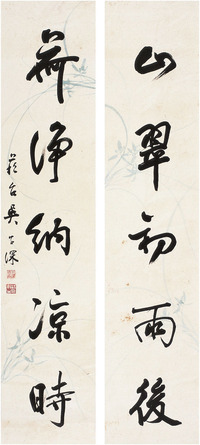 山翠初雨後
荷淨納涼時
吳子深